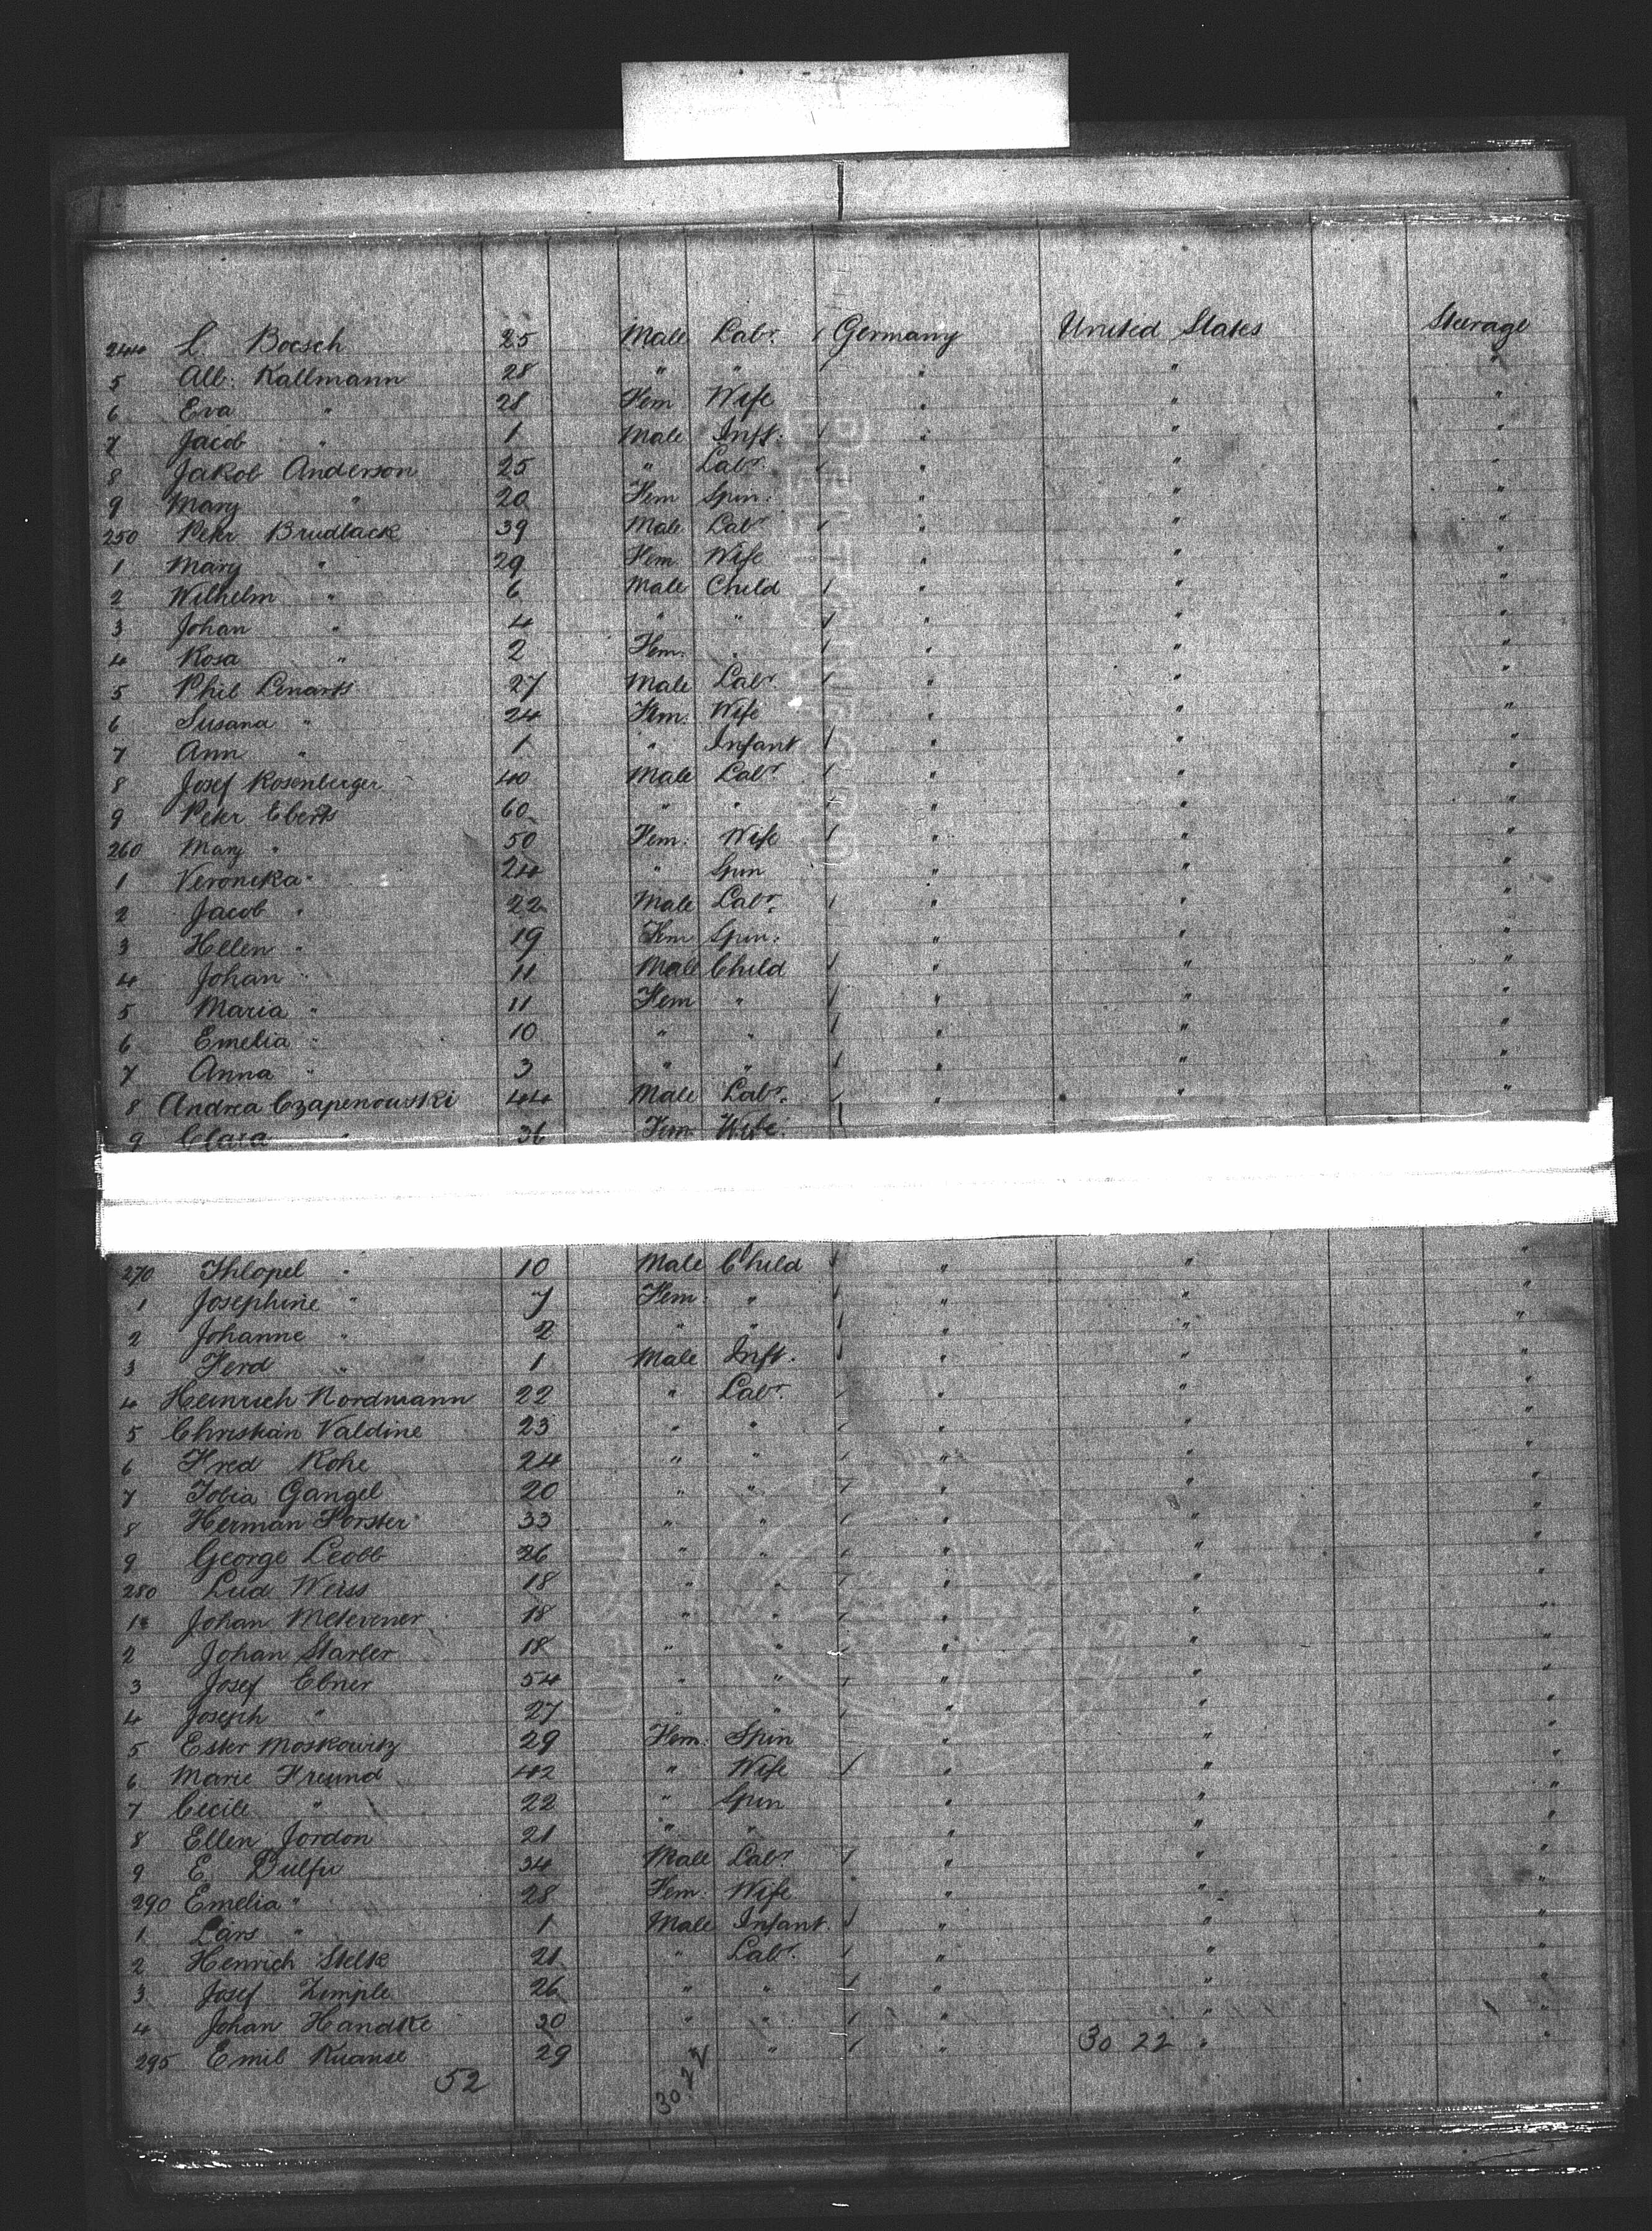 244 L Boesch 25 Male Labr. / Germany United States Steerage
5 Alb: Kallmann 28 " " / " " "
6 Eva " 28 Fem Wife " " "
7 Jacob " 1 Male Inft. / " " "
8 Jakob Anderson 25 " Labr. / " " "
9 Mary " 20 Fem Spin: " " "
250 Peter Brudlack 39 Male Labr / " " "
1 Mary " 29 Fem Wife " " "
2 Wilhelm " 6 Male Child / " " "
3 Johan " 4 " " / " " "
4 Rosa " 2 Fem: " / " " "
5 Phil Lenarts 27 Male Labr. / " " "
6 Susana " 24 Fem: Wife " " "
7 Ann " 1 " Infant / " " "
8 Josef Rosenberger 40 Male Labr / " " "
9 Peter Eberts 60 " " / " " "
260 Mary " 50 Fem: Wife / " " "
1 Veronika " 24 " Spin " " "
2 Jacob " 22 Male Labr. / " " "
3 Hellen " 19 Fem Spin: " " "
4 Johan " 11 Male Child / " " "
5 Maria " 11 Fem " / " " "
6 Emelia " 10 " " / " " "
7 Anna " 3 " " / " " "
8 Andrea Czapenowski 44 Male Labr. / " " "
9 Clara " 36 Fem Wife. /
270 Thlopel " 10 Male Child / " " "
1 Josephine " 7 Fem: " / " " "
2 Johanne " 2 " " / " " "
3 Ferd " 1 Male Inft. / " " "
4 Heinrich Nordmann 22 " Labr. / " " "
5 Christian Valdine 23 " " / " " "
6 Fred Rohe 24 " " / " " "
7 Tobia Gangel 20 " " / " " "
8 Herman Forster 33 " " / " " "
9 George Leobb 26 " " / " " "
280 Lud Weiss 18 " " / " " "
1 Johan 18 " " / " " "
2 Johan Starler 18 " " / " " "
3 Josef Ebner 54 " " / " " "
4 Joseph " 27 " " / " " "
5 Ester Moskowitz 29 Fem: Spin " " "
6 Marie Freund 42 " Wife / " " "
7 Cecile " 22 " Spin " " "
8 Ellen Jordon 21 " " " " "
9 E 34 Male Labr. / " " "
290 Emelia " 28 Fem: Wife " " "
1 Lars " 1 Male Infant. / " " "
2 Henrich Stelk 21 " Labr. / " " "
3 Josef Zimple 26 " " / " " "
4 Johan Handke 20 " " / " " "
295 Emil 29 " " / " 30 22 " "
52 30 22